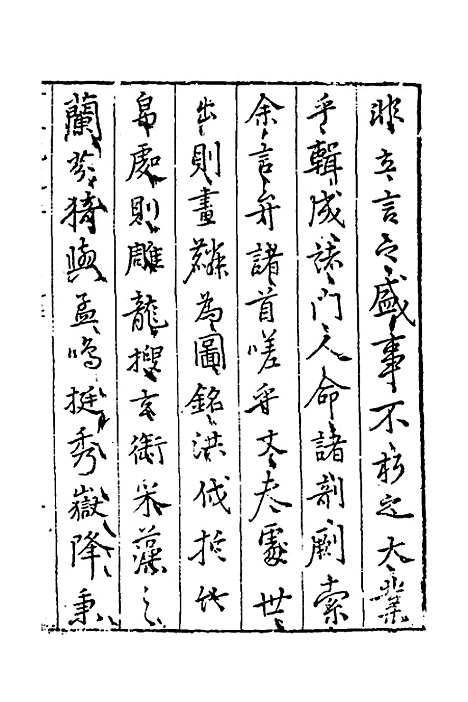 非立言之盛事不朽之大業
乎輯成諸門人命諸剞劂索
余言弁諸首嗟乎丈夫處世
出則畫麟為圖銘洪伐於
帛處則雕龍搜玄銜采藻之
蘭芬猗與孟鳴挺秀嶽降秉